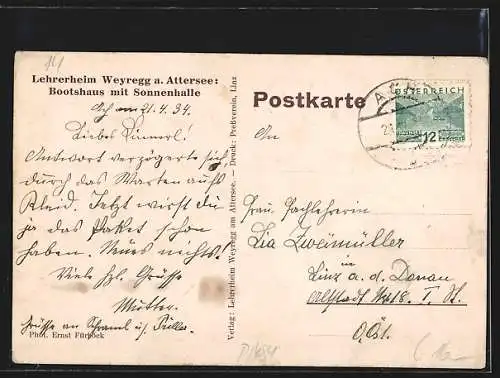 Lehrerheim Weyregg a. Attersee:
Bootshaus mit Sonnenhalle
Ach am 21.4.34.
Liebes
Antwort verzögerte sich
durch das Warten aufs
Kleid. Jetzt wirst du
ja das Paket schon
haben. Neues nichts.
Viele hzl. Grüsse
Mutter.
Grüsse an Schraml u.
Phot. Ernst Fürböck
Verlag: Lehrerheim Weyregg am Attersee. — Druck: Preßverein, Linz
Postkarte
ÖSTERREICH
12
An
Frau Fachlehrerin
Lia Zweimüller
in
Linz a. d. Donau
Altstadt No 18. I. St.
O.Öst.